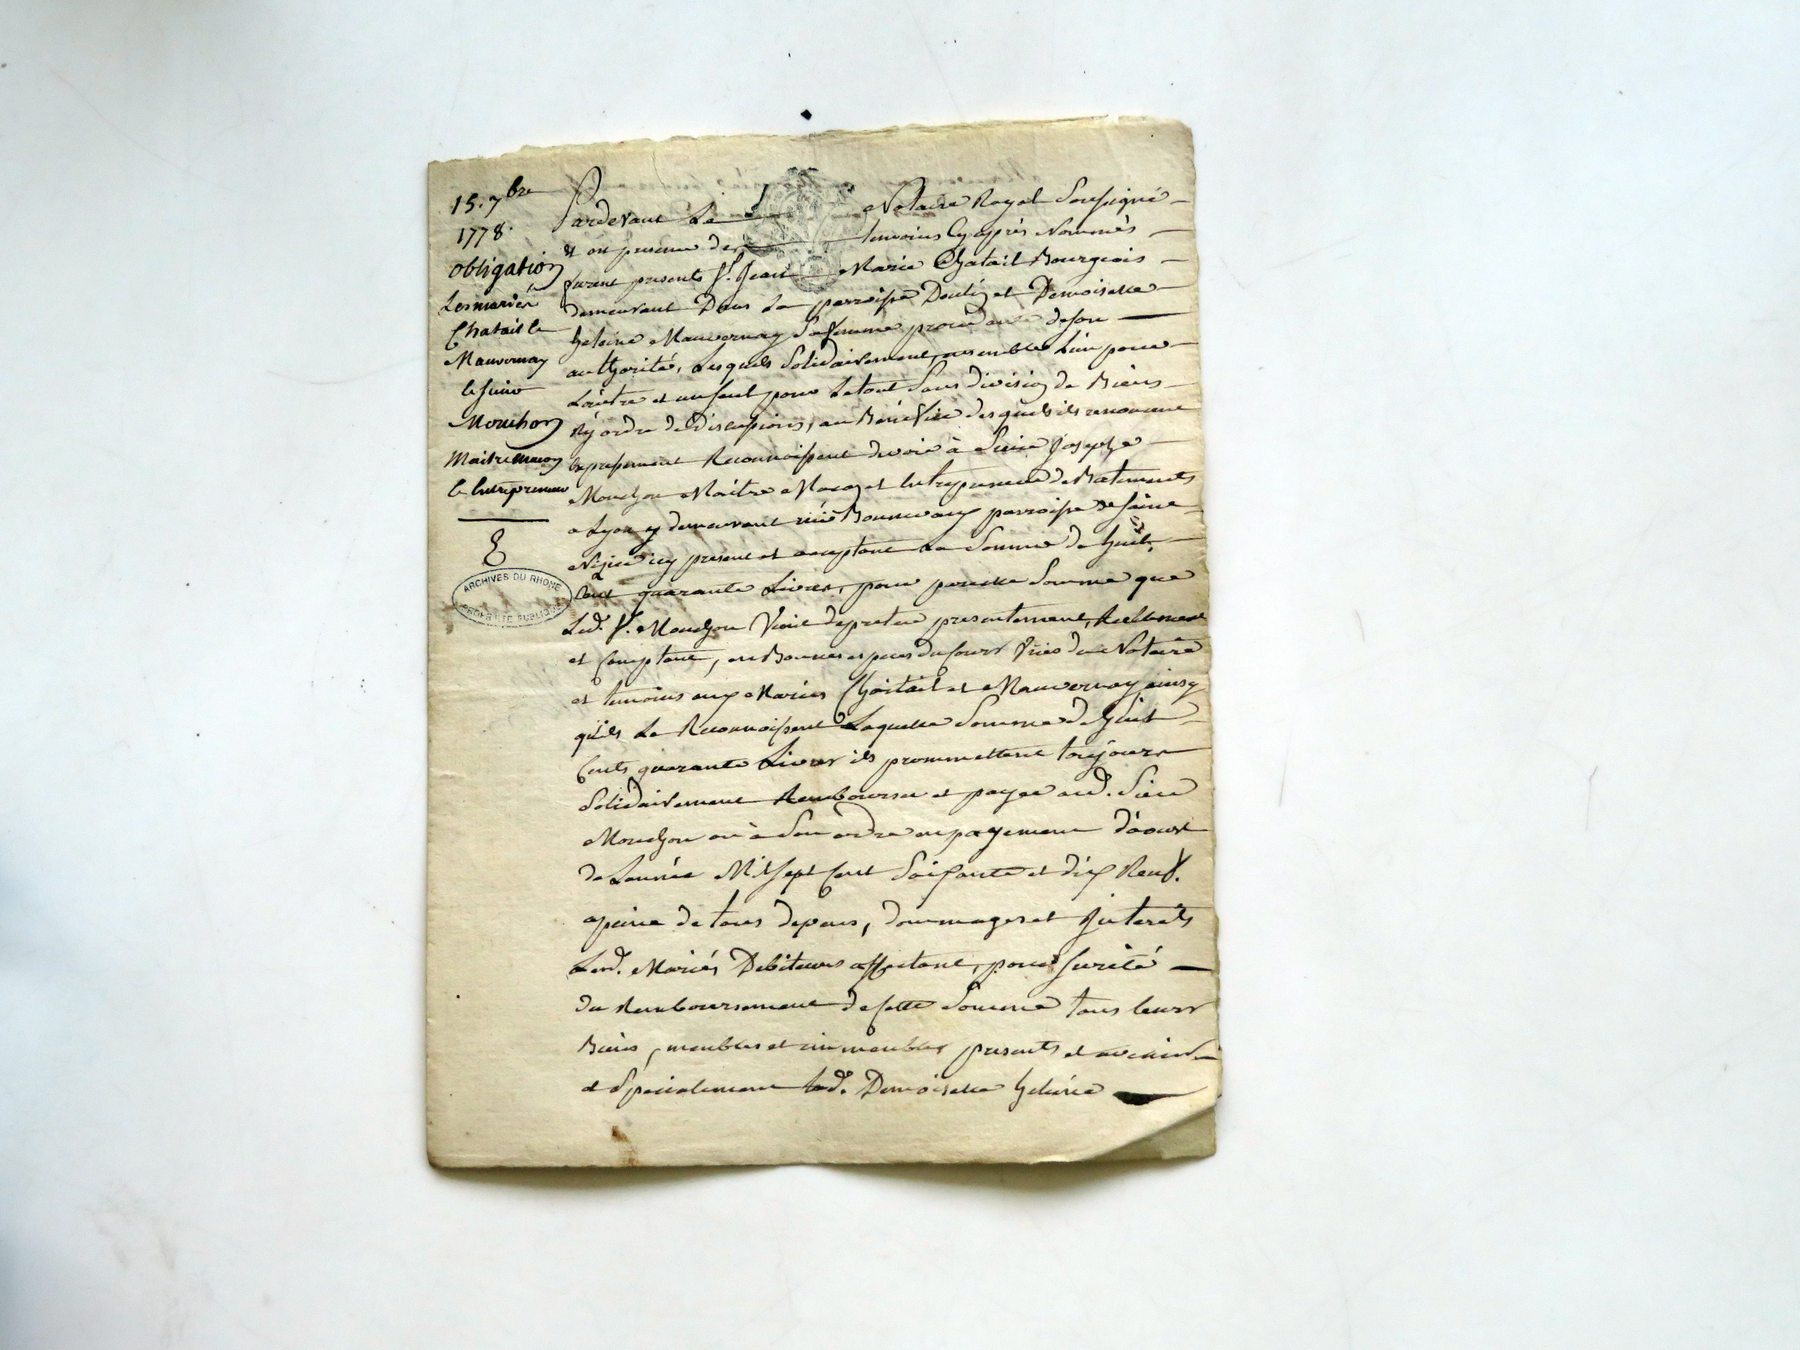 15. 7bre
1778.
Obligation
Les mariés
Chatail &
Mauvernay
le sieur
Mouchon
Maitre macon
& Entrepreneur
ARCHIVES DU RHONE
PROPRIETE PUBLIQUE
Pardevant Le Notaire Royal Soussigné
& en presence des temoins Cy après Nommés
furent presents Sr. Jean Marie Chatail Bourgeois
demeurant Dans La parroisse et Demoiselle
heleine Mauvernay Sa femme procedante de son
authorité, Lesquels Solidairement, ensemble L'un pour
L'autre et un seul pour Le tout Sans division de Biens
Ny ordre de discussions, au Benefice desquels ils renoncent
Expressement Reconnoissent devoir à Sieur Joseph
Mouchon Maitre Macon et Entrepreneur de Batiments
a Lyon y demeurant rüe Bonnevaux parroisse de Saint
Nizier icy present et acceptant La Somme de huit
Cent quarante Livres, pour pareille Somme que
Led. Sr. Mouchon Vient de preter presentement, Reellement
et Comptant, en Bonnes especes du Cours Vües du Notaire
et temoins aux Mariés Chatail et Mauvernay ainsy
qu'ils Le Reconnoissent Laquelle Somme de huit
Cents quarante Livres ils prommettent toujours
Solidairement Rembourser et payer aud. Sieur
Mouchon ou à Son ordre en payement d'aoust
de L'année Mil Sept Cent Soixante et dix Neuf.
a peine de tous depens, dommages et Interets
Lesd. Mariés Debiteurs affectent, pour Sureté
du Remboursement de Cette Somme tous leurs
Biens, meubles et immeubles presents et avenir
et Spécialement lad. Demoiselle heleine